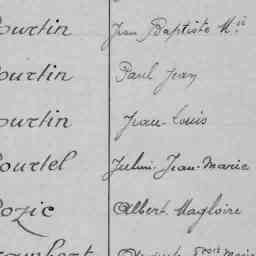 ourtin Jean Baptiste M.ie
ourtin Paul Jean
ourtin Jean-Louis
ourtel Jean-Marie
ozic Albert-Magloire